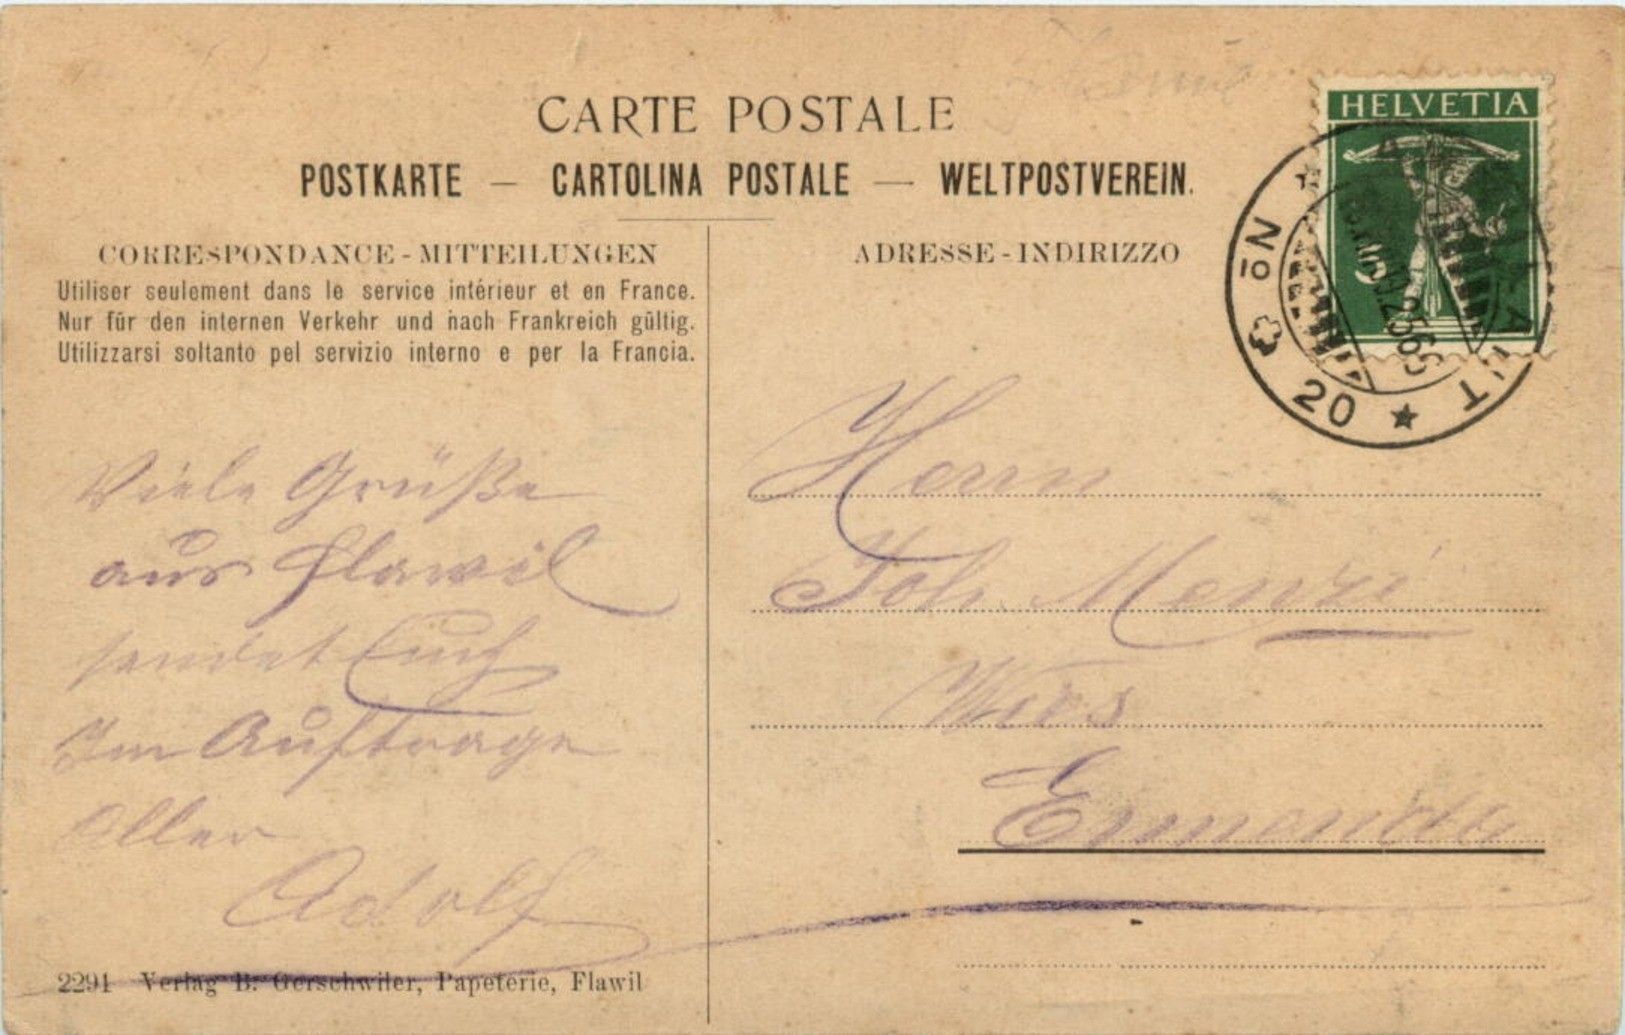 CARTE POSTALE
POSTKARTE — CARTOLINA POSTALE — WELTPOSTVEREIN.
CORRESPONDANCE - MITTEILUNGEN
Utiliser seulement dans le service intérieur et en France.
Nur für den internen Verkehr und nach Frankreich gültig.
Utilizzarsi soltanto pel servizio interno e per la Francia.
Viele Grüße
aus Flawil
sendet Euch
Im Auftrage
Aller
Adolf
2291 Verlag B. Gerschwiler, Papeterie, Flawil
ADRESSE - INDIRIZZO
HELVETIA
20
Herrn
Joh. Menzi
Ennenda